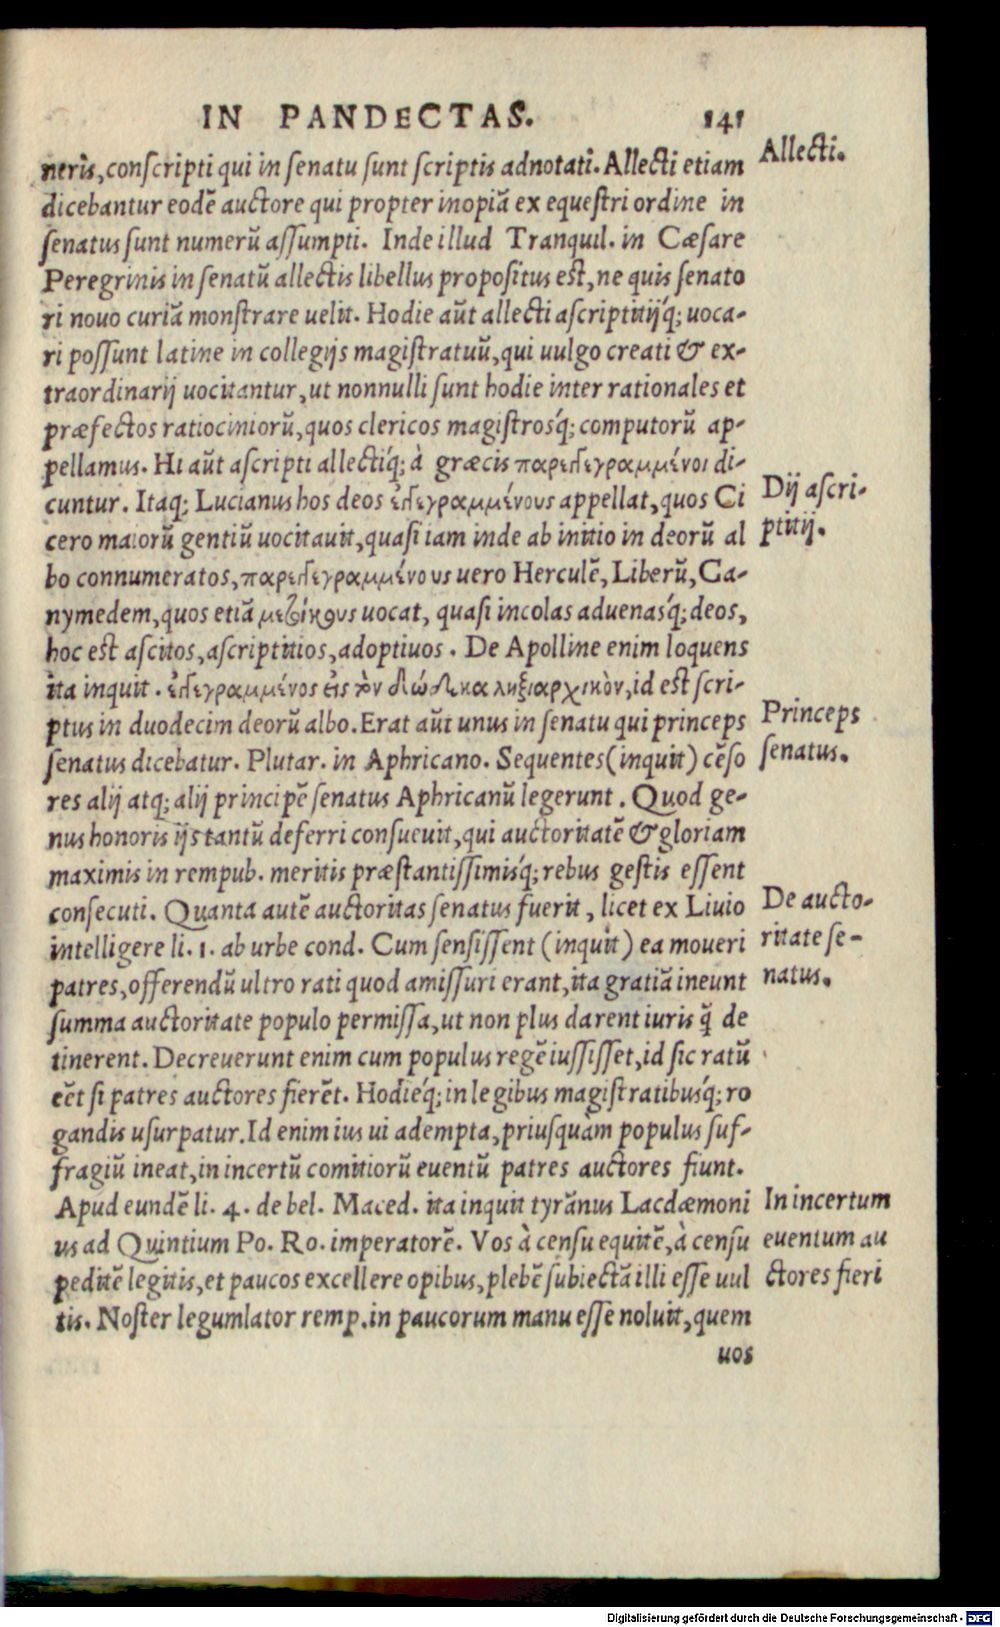 IN PANDECTAS. 141
neris, conscripti qui in senatu sunt scriptis adnotati. Allecti etiam
Allecti.
dicebantur eodē auctore qui propter inopiā ex equestri ordine in
senatus sunt numerū assumpti. Inde illud Tranquil. in Cæsare
Peregrinis in senatū allectis libellus propositus est, ne quis senato
ri nouo curiā monstrare uelit. Hodie aūt allecti ascriptitijq́; uoca-
ri possunt latine in collegijs magistratuū, qui uulgo creati & ex-
traordinarij uocitantur, ut nonnulli sunt hodie inter rationales et
præfectos ratiociniorū, quos clericos magistrosq́; computorū ap-
pellamus. Hi aūt ascripti allectiq́; à græcis παρεγγεγραμμένοι di-
cuntur. Itaq; Lucianus hos deos ἐγγεγραμμένους appellat, quos Ci
Dij ascri-
ptitij.
cero maiorū gentiū uocitauit, quasi iam inde ab initio in deorū al
bo connumeratos, παρεγγεγραμμένους uero Herculē, Liberū, Ga-
nymedem, quos etiā μετοίκους uocat, quasi incolas aduenasq́; deos,
hoc est ascitos, ascriptitios, adoptiuos. De Apolline enim loquens
ita inquit. ἐγγεγραμμένος εἰς τὸν δώδεκα ληξιαρχικὸν, id est scri-
ptus in duodecim deorū albo. Erat aūt unus in senatu qui princeps
Princeps
senatus.
senatus dicebatur. Plutar. in Aphricano. Sequentes (inquit) cēso
res alij atq; alij principē senatus Aphricanū legerunt. Quod ge-
nus honoris ijs tantū deferri consueuit, qui auctoritatē & gloriam
maximis in rempub. meritis præstantissimisq́; rebus gestis essent
consecuti. Quanta autē auctoritas senatus fuerit, licet ex Liuio
De aucto-
ritate se-
natus.
intelligere li. 1. ab urbe cond. Cum sensissent (inquit) ea moueri
patres, offerendū ultro rati quod amissuri erant, ita gratiā ineunt
summa auctoritate populo permissa, ut non plus darent iuris q̄̀ de
tinerent. Decreuerunt enim cum populus regē iussisset, id sic ratū
eēt si patres auctores fierēt. Hodieq́; in legibus magistratibusq́; ro
gandis usurpatur. Id enim ius ui adempta, priusquàm populus suf-
fragiū ineat, in incertū comitiorū euentū patres auctores fiunt.
Apud eundē li. 4. de bel. Maced. ita inquit tyrānus Lacdæmoni
In incertum
euentum au
ctores fieri
us ad Quintium Po. Ro. imperatorē. Vos à censu equitē, à censu
peditē legitis, et paucos excellere opibus, plebē subiectā illi esse uul
tis. Noster legumlator remp. in paucorum manu esse noluit, quem
uos
Digitalisierung gefördert durch die Deutsche Forschungsgemeinschaft - DFG